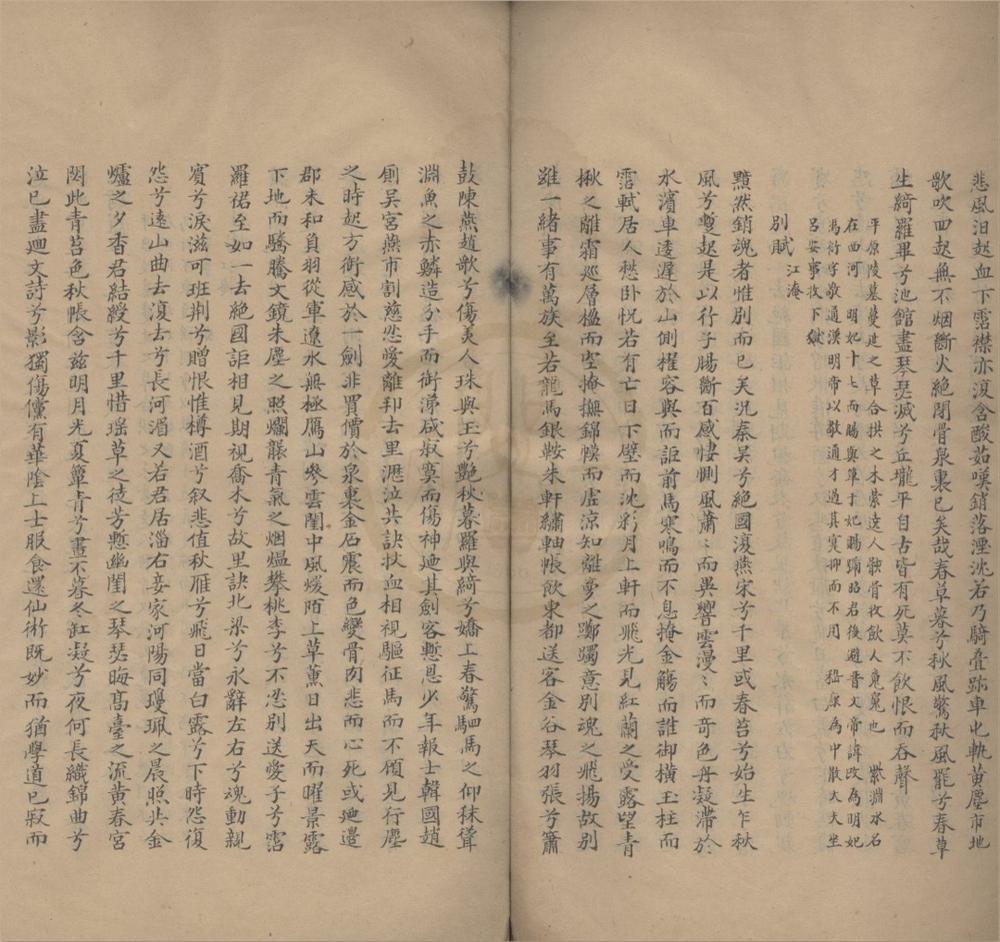 悲風汩起血下霑襟亦復含酸茹嘆銷落湮沈若乃騎疊跡車屯軌黄塵市地
歌吹四起無不烟斷火絶閉骨泉裏已矣哉春草暮兮秋風驚秋風罷兮春草
生綺羅畢兮池館盡琴瑟滅兮丘壠平自古皆有死莫不飲恨而吞聲
平原陵墓蔓延之草合拱之木縈遶人骸骨收飲人魂寃也　紫淵水名
在西河　明妃十七而賜與單于妃賜彌昭君後避晋文帝諱改為明妃
馮衍字敬通漢明帝以敬通才過其寔抑而不用　嵇康為中散大夫坐
呂安事收下獄
别賦江淹
黯然銷魂者惟别而已矣況秦吴兮絶國復燕宋兮千里或春苔兮始生乍秋
風兮蹔起是以行子腸斷百感悽惻風蕭〻而異響雲漫〻而竒色舟凝滯於
水濱車逶遲於山側櫂容與而詎前馬寒鳴而不息掩金觴而誰御横玉柱而
霑軾居人愁卧怳若有亡日下壁而沈彩月上軒而飛光見紅蘭之受露望青
楸之離霜巡層楹而空掩撫錦幙而虚涼知離夢之躑躅意别魂之飛揚故别
雖一緒事有萬族至若龍馬銀鞍朱軒繡軸帳飲東都送客金谷琴羽張兮簫
鼓陳燕趙歌兮傷美人珠與玉兮艶秋暮羅與綺兮嬌上春驚駟馬之仰秣聳
淵魚之赤鱗造分手而銜涕感寂莫而傷神迺其劍客慙恩少年報士韓國趙
厠吴宮燕市割慈忍愛離邦去里瀝泣共訣抆血相視驅征馬而不顧見行塵
之時起方銜感於一劍非買價於泉裏金石震而色變骨肉悲而心死或迺邉
郡未和負羽從軍遼水無極鴈山參雲閨中風煖陌上草薰日出天而曜景露
下地而騰文鏡朱塵之照爛襲青氣之烟煴攀桃李兮不忍别送愛子兮霑
羅裙至如一去絶國詎相見期視喬木兮故里訣北梁兮永辭左右兮魂動親
賓兮淚滋可班荆兮贈恨惟樽酒兮叙悲值秋雁兮飛日當白露兮下時怨復
怨兮遠山曲去復去兮長河湄又若君居淄右妾家河陽同瓊珮之晨照共金
爐之夕香君結綬兮千里惜瑶草之徒芳慙幽閨之琴瑟晦髙臺之流黄春宮
閟此青苔色秋帳含兹明月光夏簟青兮晝不暮冬缸凝兮夜何長織錦曲兮
泣已盡迴文詩兮影獨傷儻有華陰上士服食還仙術既妙而猶學道已寂而